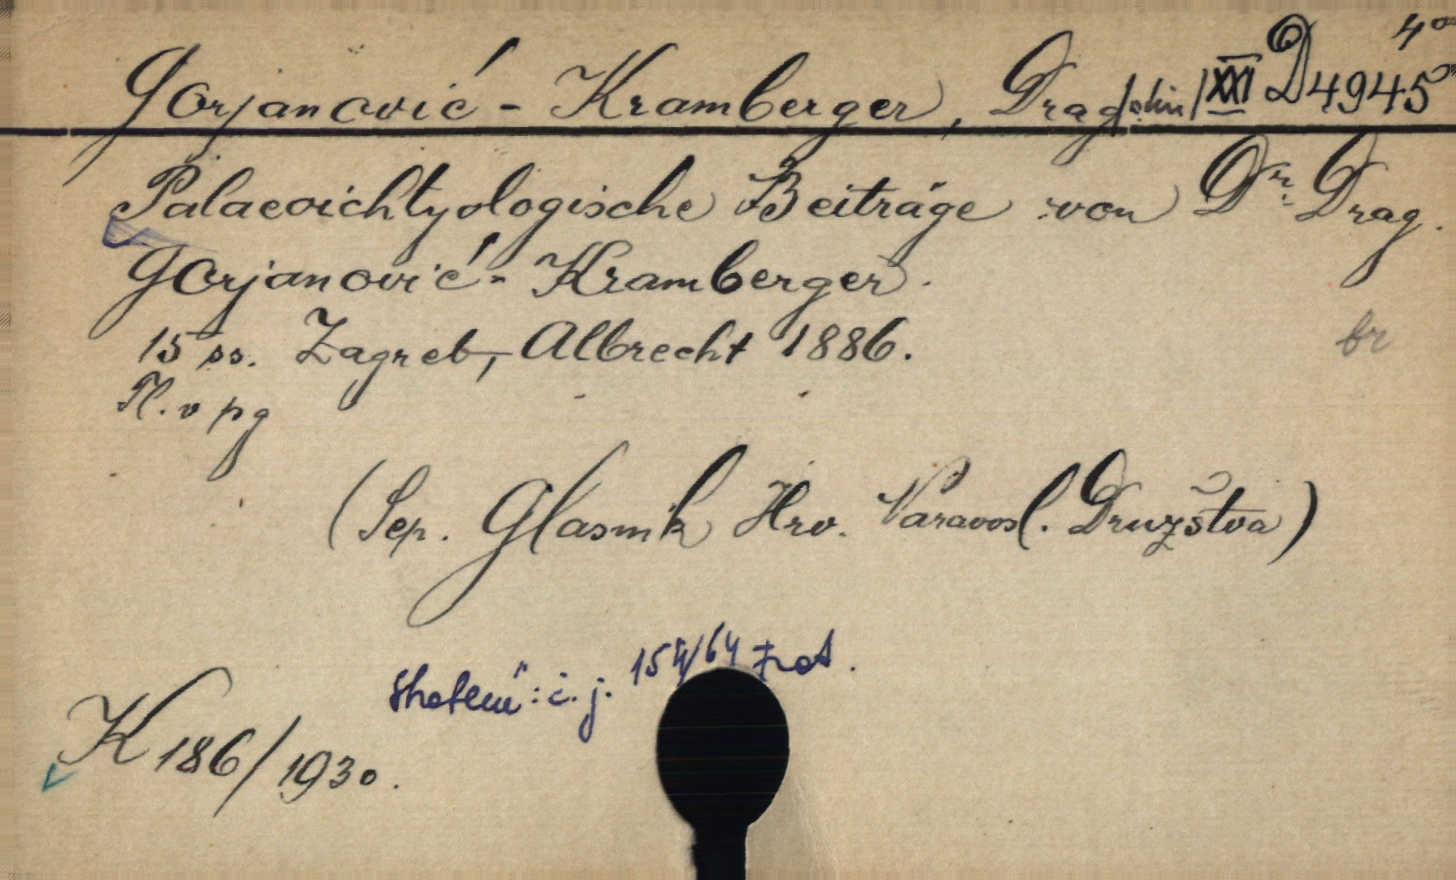 4°
Gorjanović-Kramberger, Drag/olin/ XXI D 4945
Palaeoichtyologische Beiträge von Dr. Drag.
Gorjanović-Kramberger.
15 ss. Zagreb, Albrecht 1886.
br
Pl. v pg
(Sep. Glasnik Hrv. Naravosl. Družštva)
č. j. 154/64
K 186/1930.